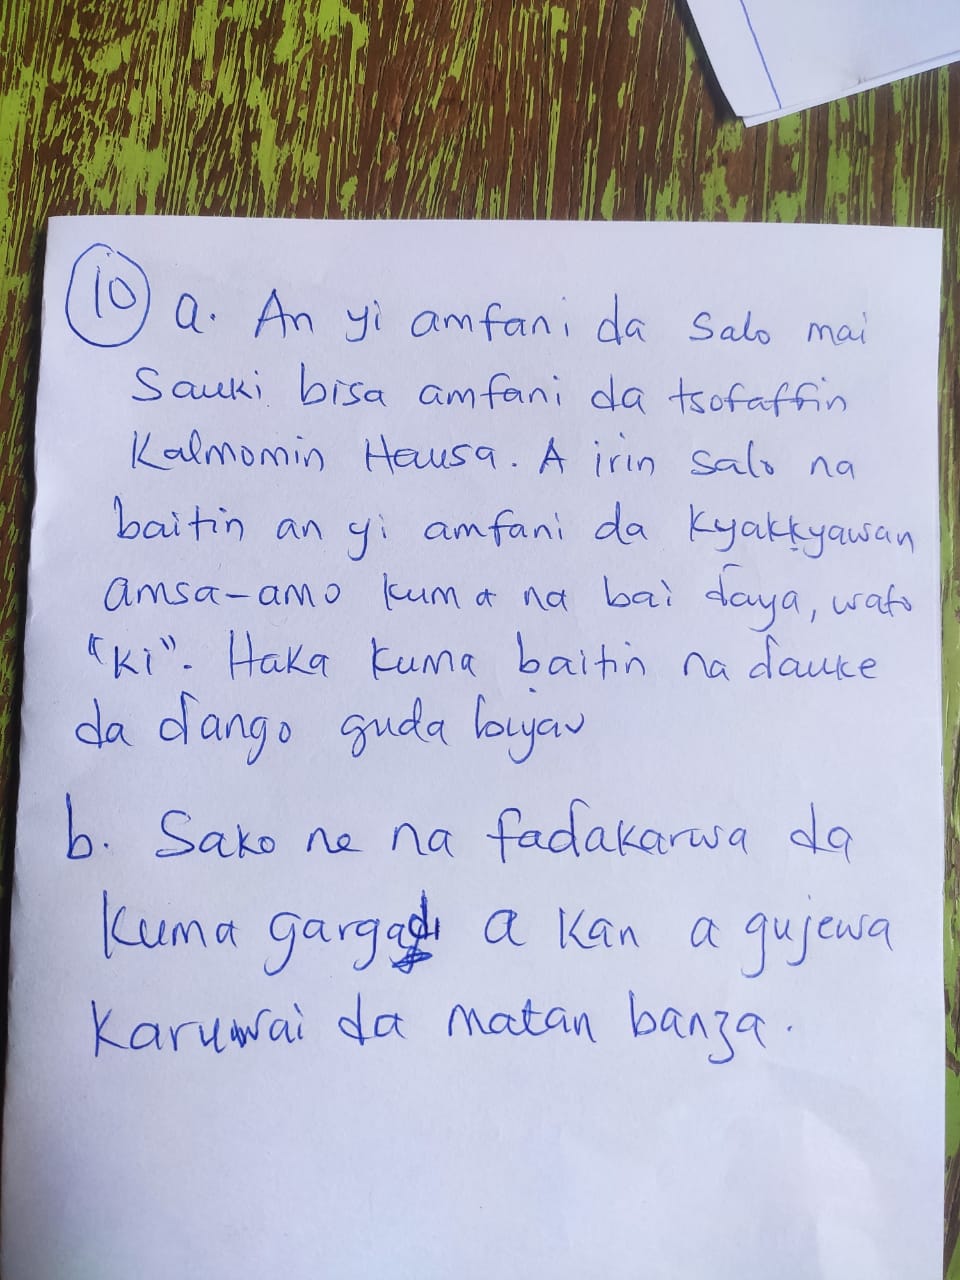 10 a. An yi amfani da salo mai
Sauki bisa amfani da tsofaffin
Kalmomin Hausa. A irin salo na
baitin an yi amfani da kyakkyawan
amsa-amo kuma na bai ɗaya, wato
"ki". Haka kuma baitin na ɗauke
da ɗango guda biyar
b. Sako ne na faɗakarwa da
kuma gargadi a kan a gujewa
Karuwai da matan banza.